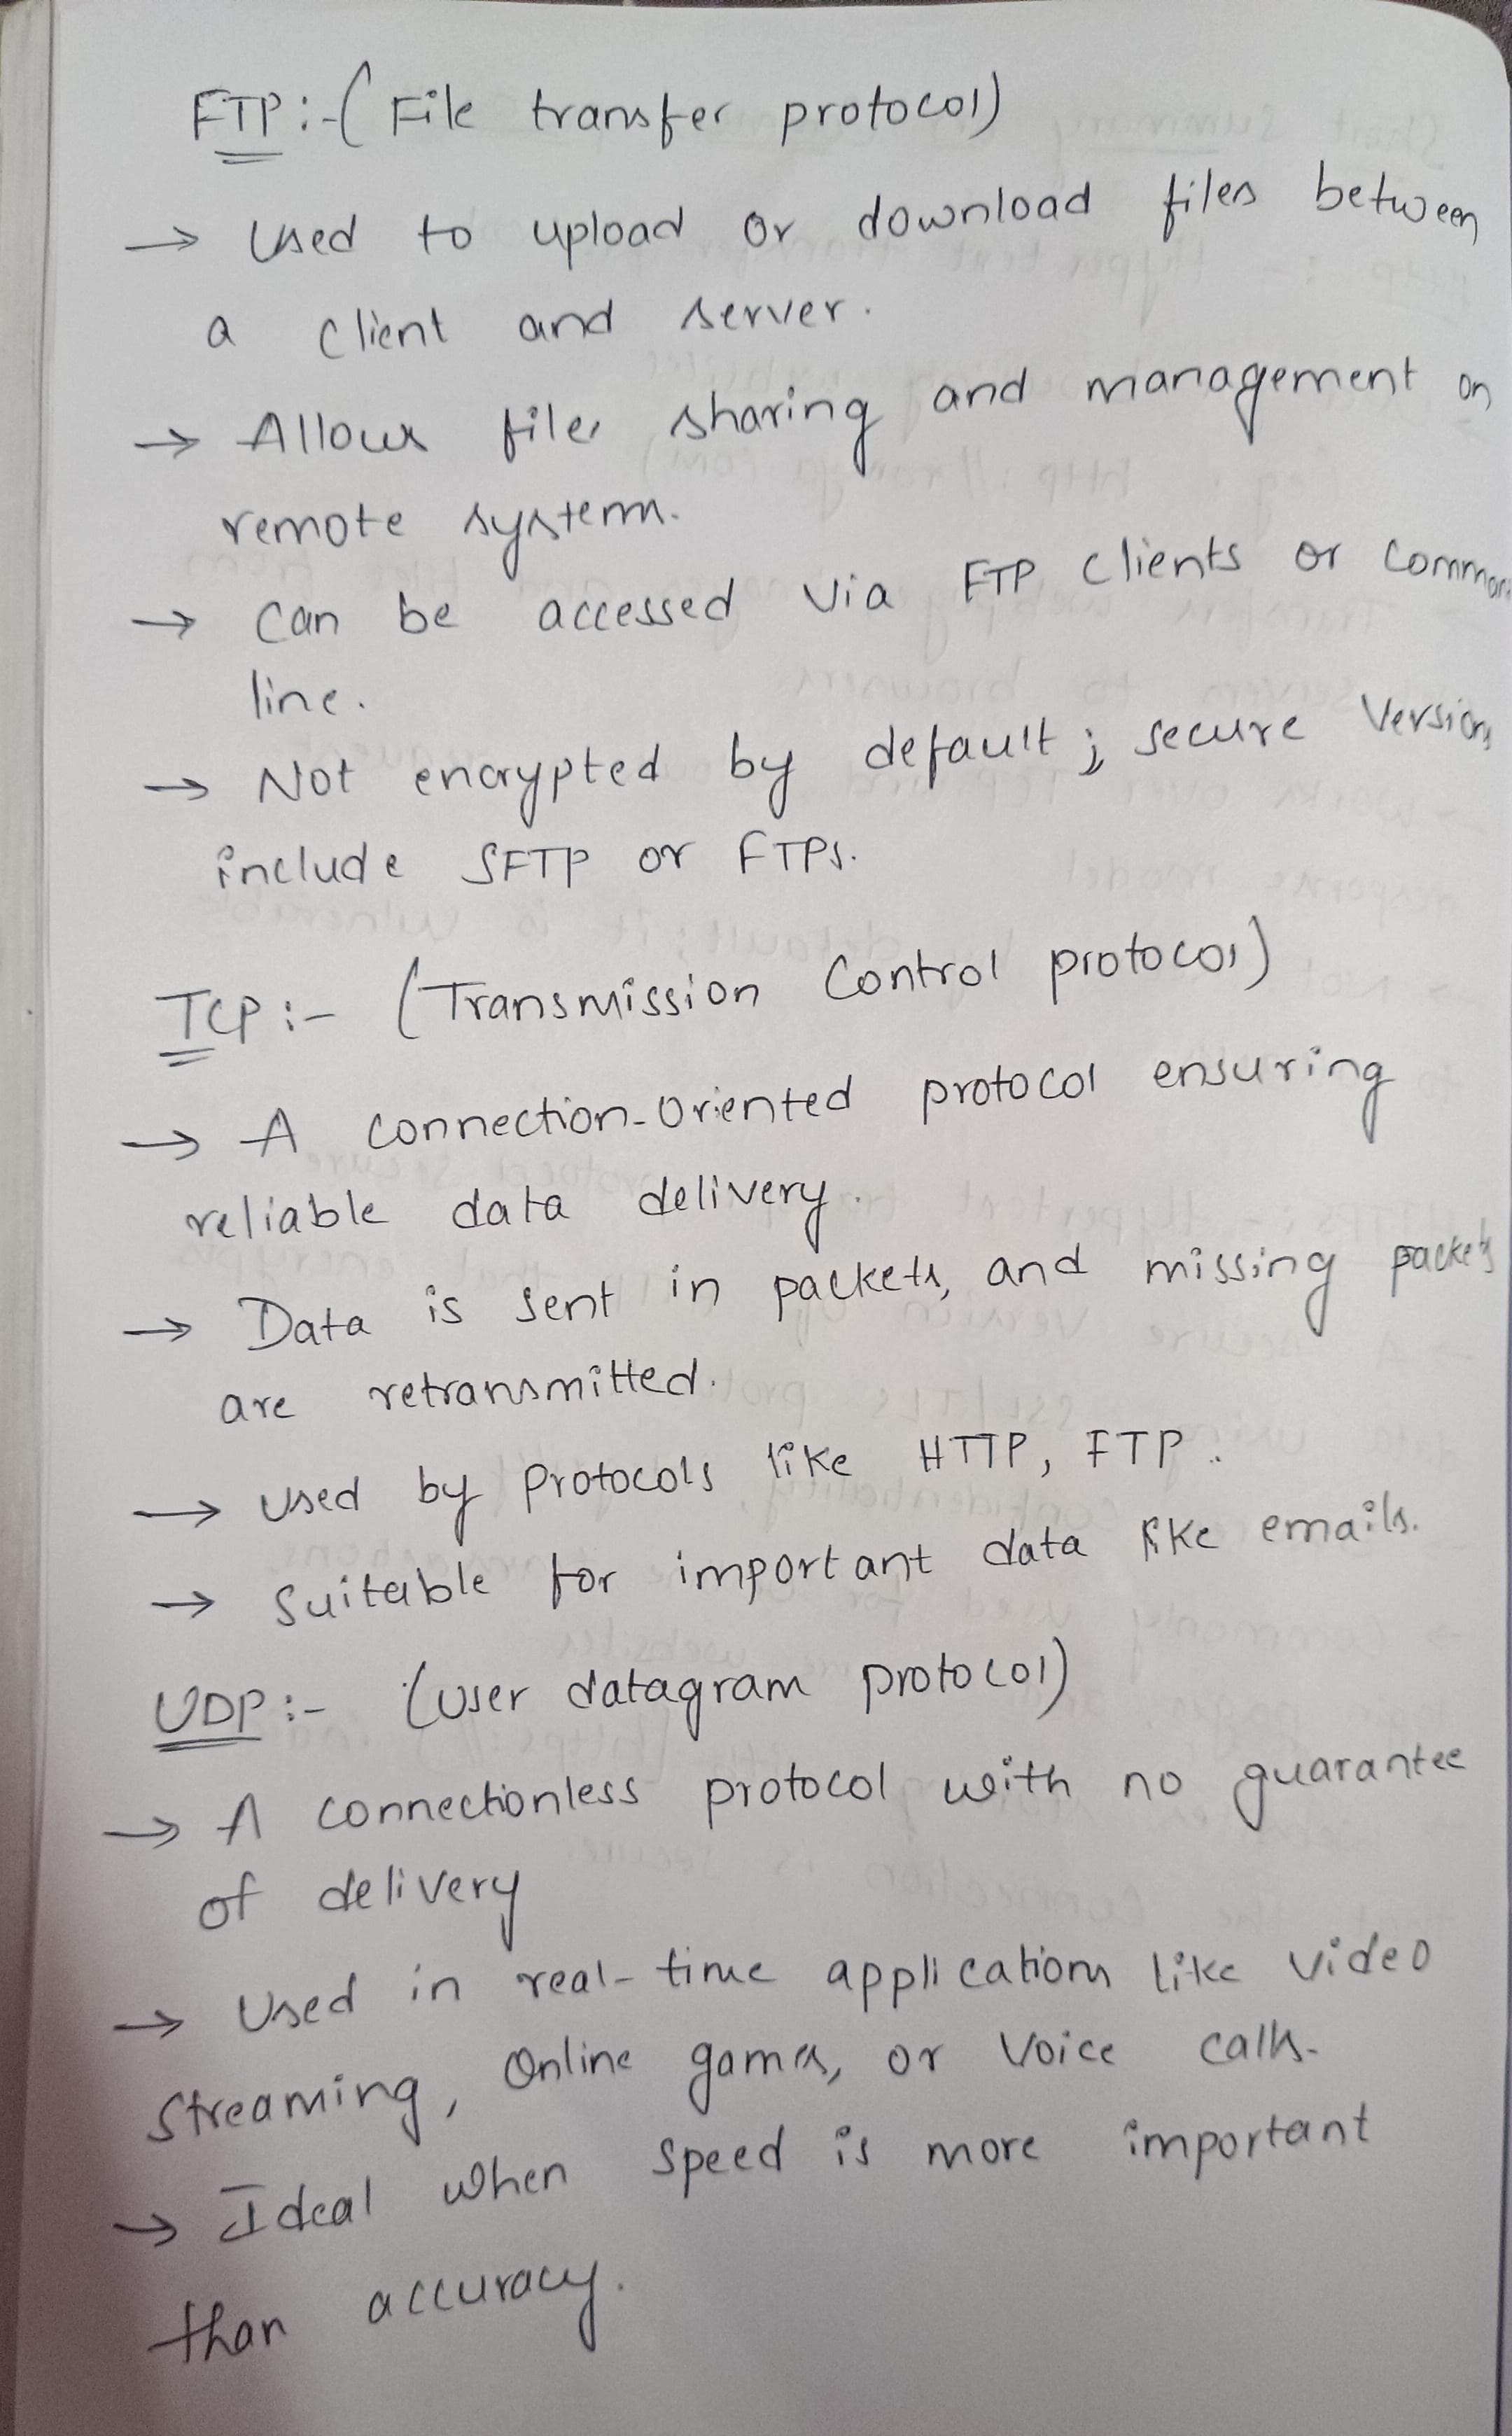 FTP :- ( File transfer protocol)
→ Used to upload or download files between
a client and server.
→ Allows files sharing and management on
remote system.
→ Can be accessed via FTP clients or
line.
→ Not encrypted by default ; secure versions
include SFTP or FTPs.
TCP :- ( Transmission Control protocol)
→ A connection-oriented protocol ensuring
reliable data delivery.
→ Data is sent in packets, and missing packets
are retransmitted.
→ Used by protocols like HTTP, FTP.
→ Suitable for important data like emails.
UDP :- (user datagram protocol)
→ A connectionless protocol with no guarantee
of delivery
→ Used in real-time applications like video
streaming, Online games, or voice calls.
→ Ideal when speed is more important
than accuracy.